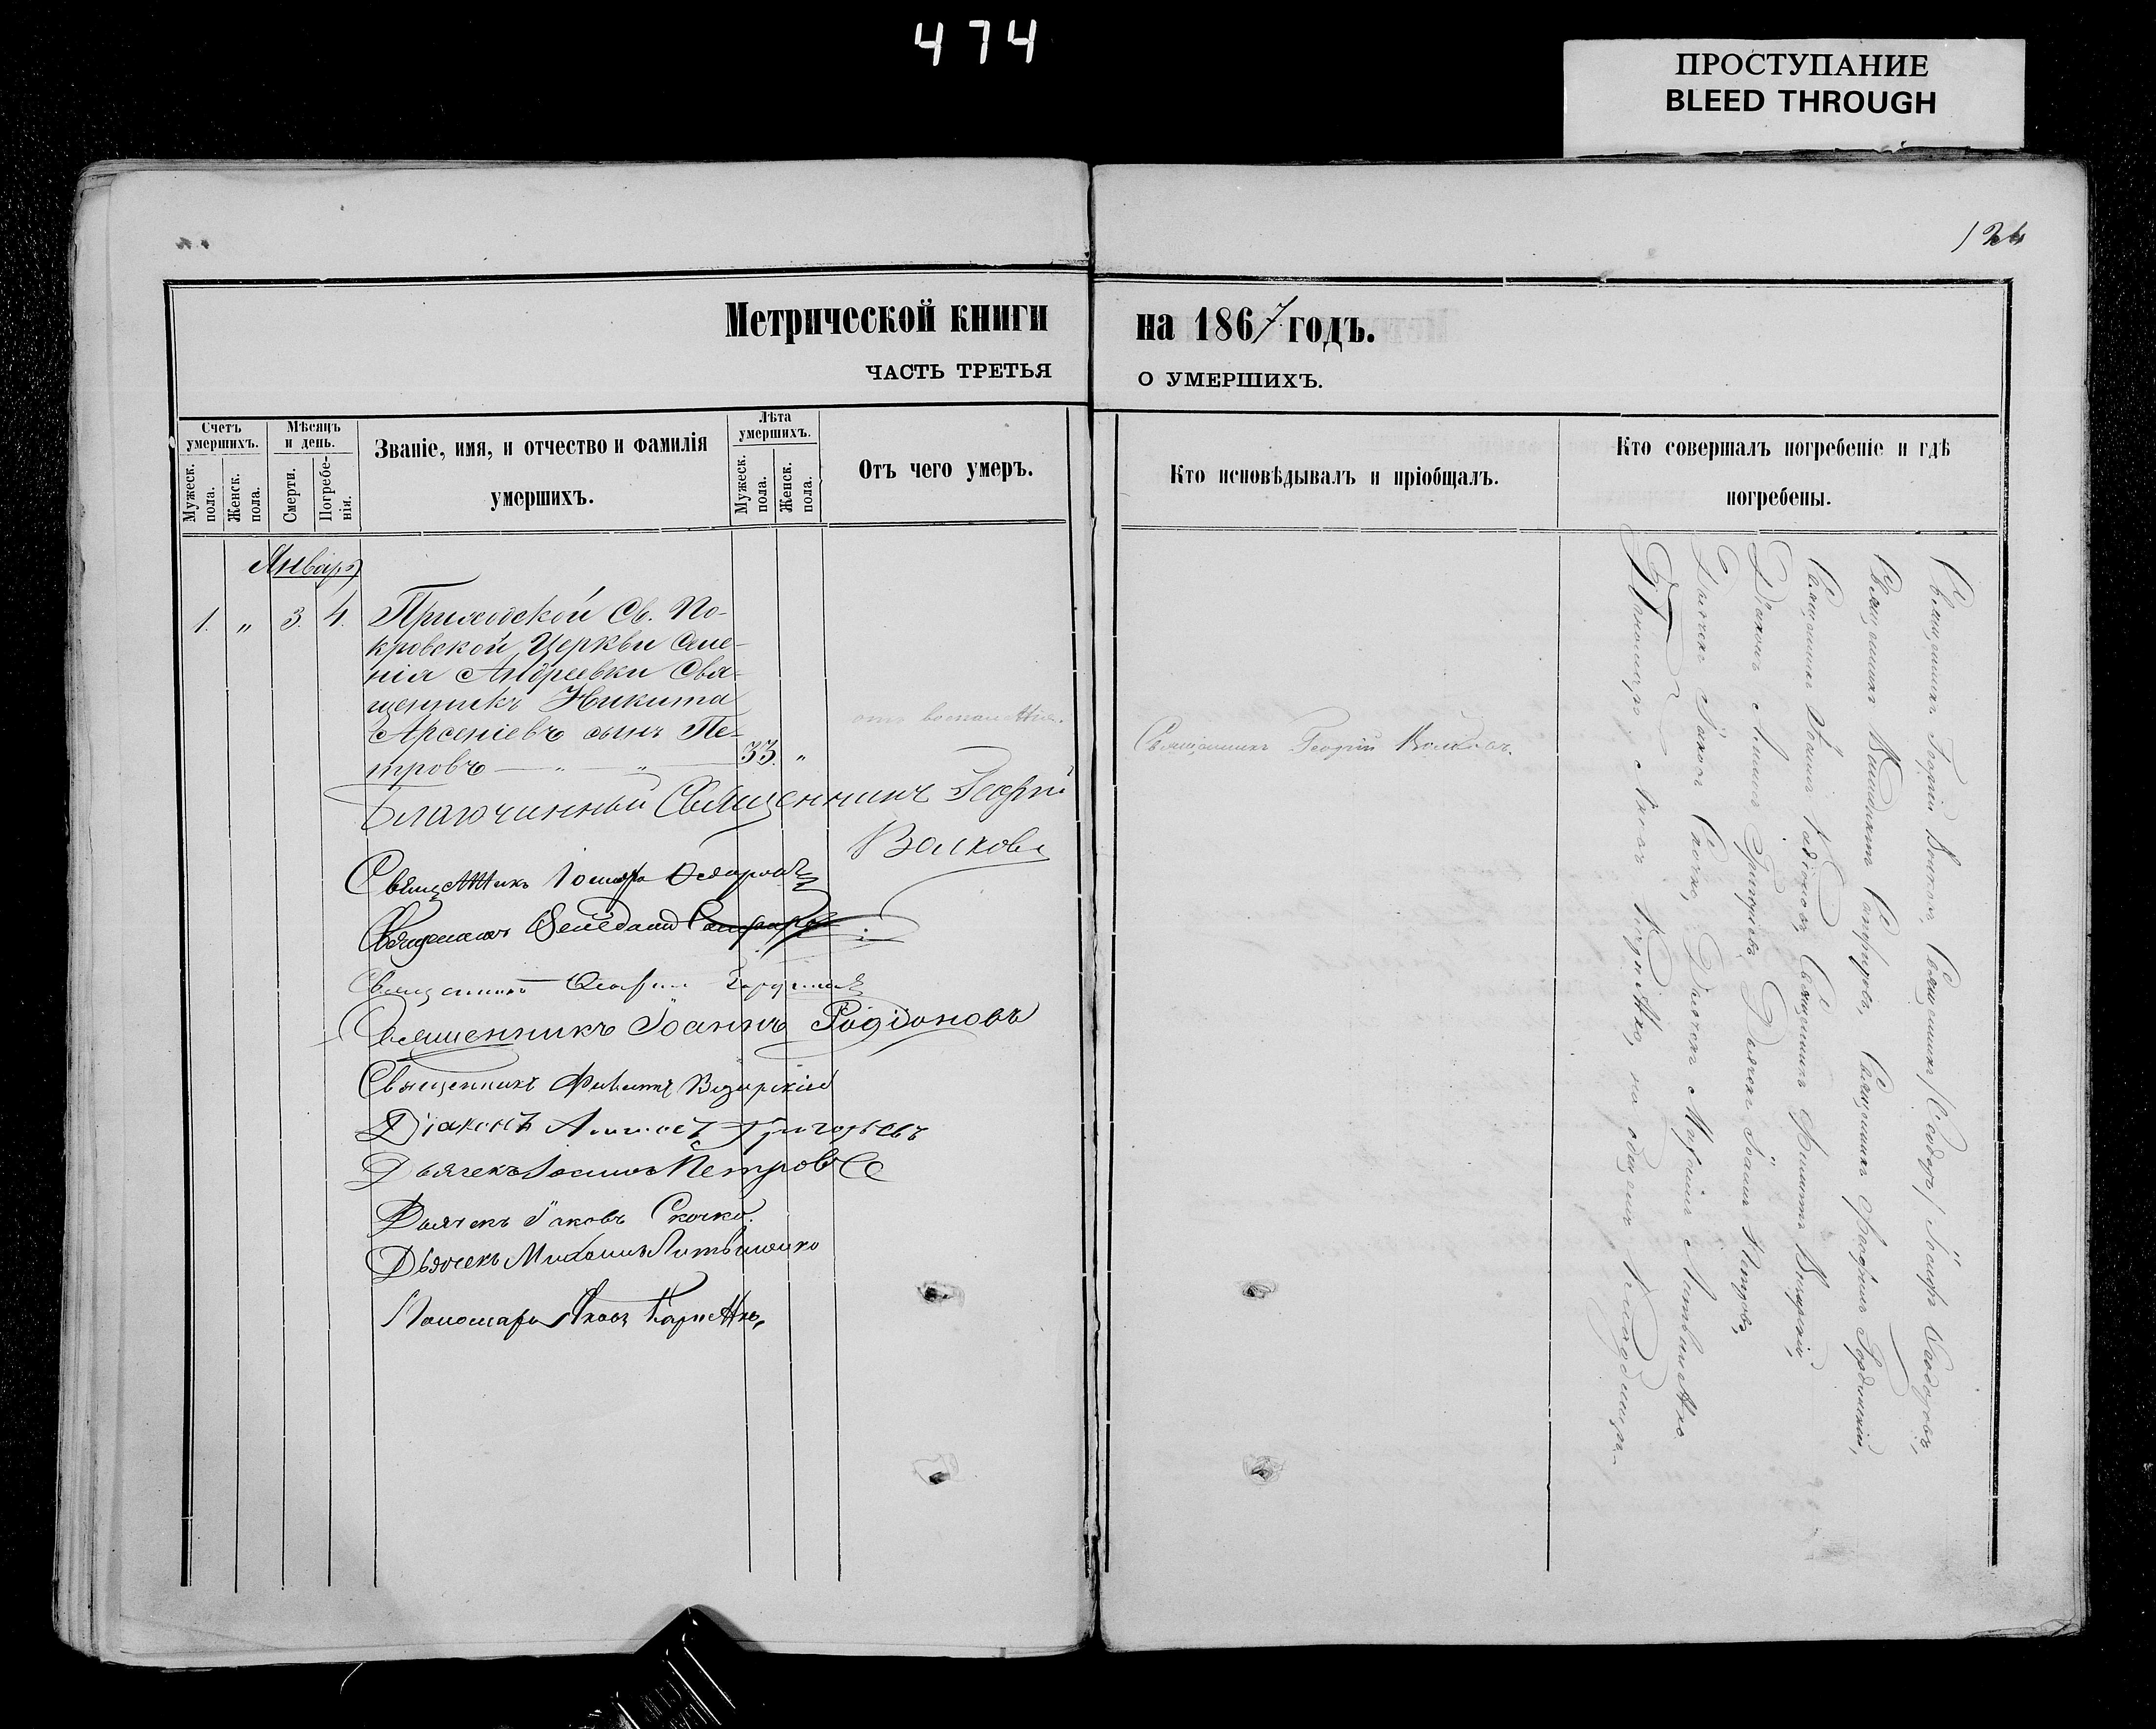 474
ПРОСТУПАНИЕ
BLEED THROUGH
124
Метрической книги на 1867 годъ.
ЧАСТЬ ТРЕТЬЯ О УМЕРШИХЪ.
Счетъ умершихъ.
Мужеск. пола.
Женск. пола.
Мѣсяцъ и день.
Смерти.
Погребенія.
Званіе, имя, и отчество и фамилія
умершихъ.
Лѣта умершихъ.
Мужеск. пола.
Женск. пола.
Отъ чего умеръ.
Кто исповѣдывалъ и пріобщалъ.
Кто совершалъ погребеніе и гдѣ
погребены.
Январь
1. " 3. 4. Приходской Св. По-
кровской Церкви Селе-
нія Андреевки Свя-
щенникъ Никита
Арсеніевъ сынъ Пе-
тровъ 33. "
отъ воспаленія.
Священникъ Георгій Волковъ.
Благочинный Священникъ Георгій
Волковъ
Священникъ Іосифъ
Священникъ
Священникъ
Священникъ Іоаннъ Родіоновъ
Священникъ Филиппъ
Діаконъ Григорьевъ
Дьячекъ Іоаннъ Петровъ
Дьячекъ Іаковъ Скочко.
Дьячекъ Михаилъ Литвиненко
Пономарь Яковъ Корнѣнко
Священникъ Георгій Волковъ, Священникъ Іосифъ
Священникъ Священникъ
Священникъ Іоаннъ Родіоновъ, Священникъ Филиппъ
Діаконъ Григорьевъ, Дьячекъ Іоаннъ Петровъ,
Дьячекъ Іаковъ Скочко, Дьячекъ Михаилъ Литвиненко
Пономарь Яковъ на общемъ кладбищѣ.